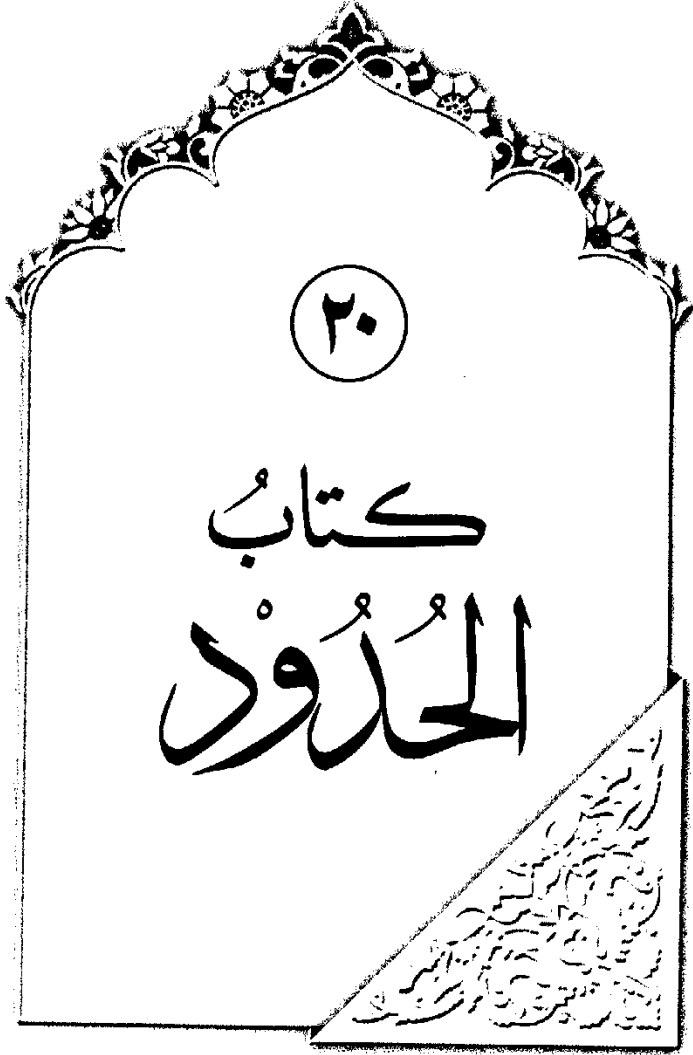 ٢٠
كتابُ
الحُدُوْد